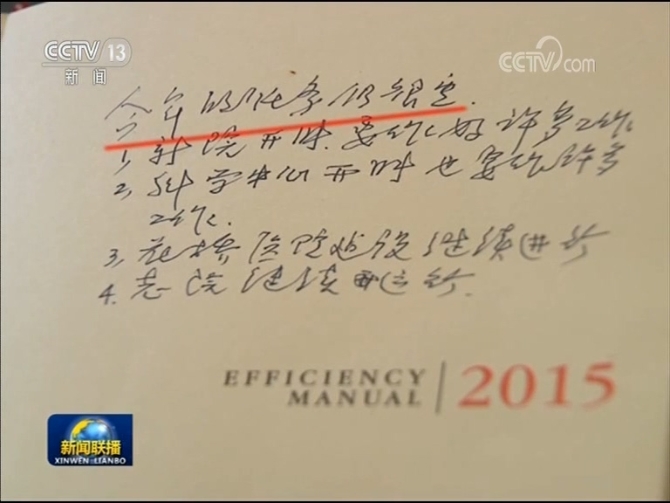 CCTV 13
新闻
CCTV.com
今年的任务仍很重.
1, 新院开时.要作好许多工作
2, 科学中心开时也要作许多
工作.
3, 建设继续进行
4. 老院继续进行.
EFFICIENCY
MANUAL
2015
新闻联播
XINWEN LIANBO